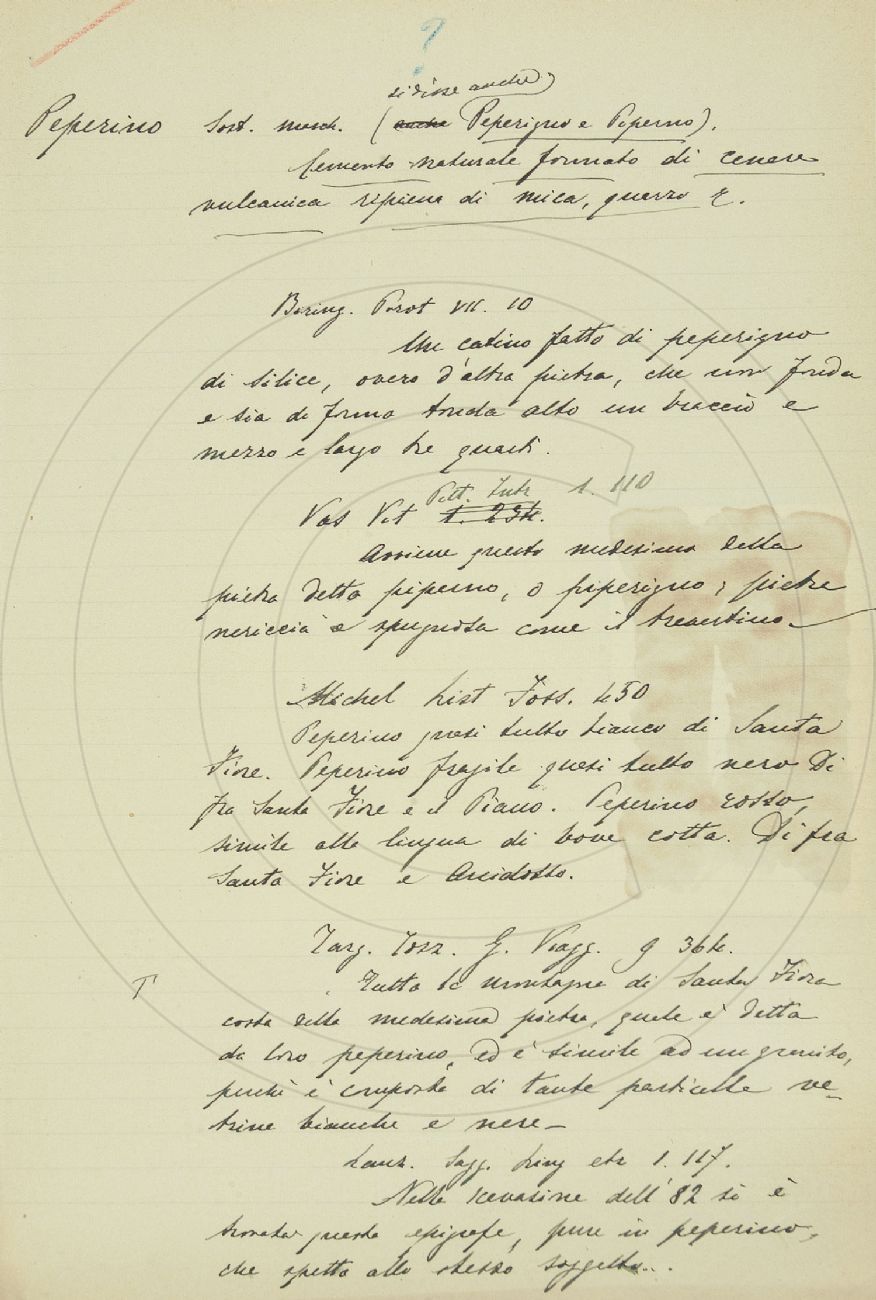 ?
si disse anche
Peperino Sost. masch. (anche Peperigno e Piperno).
Cemento naturale formato di cenere
vulcanica ripiena di mica, quarzo &.
Biring. Pirot VII. 10
Un catino fatto di peperigno
di silice, overo d'altra pietra, che non fonda
e sia di forma tonda alto un braccio e
mezzo e largo tre quarti.
Pitt. Intr 1. 110
Vas Vit 1. 234.
Avviene questo medesimo della
pietra detta piperno, o piperigno; pietra
nericcia e spugnosa come il trevertino.
Michel List Foss. 450
Peperino quasi tutto bianco di Santa
Fiore. Peperino fragile quasi tutto nero Di
fra Santa Fiore e il Piano. Peperino rosso,
simile alla lingua di bove cotta. Di fra
Santa Fiore e Arcidosso.
Targ. Tozz. G. Viagg. 9 364.
T Tutta la montagna di Santa Fiora
costa della medesima pietra, quale è detta
da loro peperino, ed è simile ad un granito,
perchè è composta di tante particelle ve-
trine bianche e nere_
Lanz. Sagg. Ling etr 1. 117.
Nella scavasine dell'82 si è
trovata questa epigrafe, pure in peperino,
che spetta allo stesso soggetto...